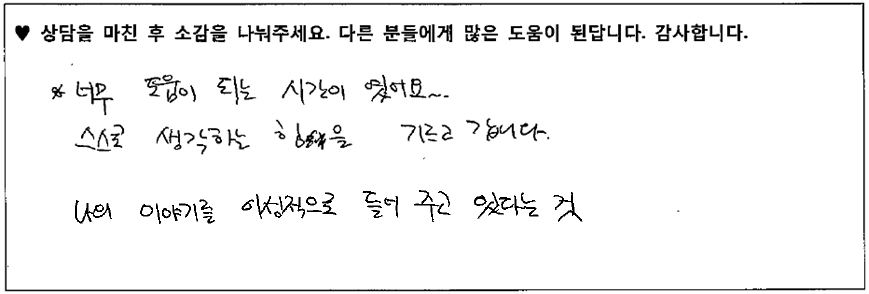 ♥ 상담을 마친 후 소감을 나눠주세요. 다른 분들에게 많은 도움이 된답니다. 감사합니다.
* 너무 도움이 되는 시간이 였어요~..
스스로 생각하는 힘을 기르고 갑니다.
나의 이야기를 이성적으로 들어 주고 있다는 것